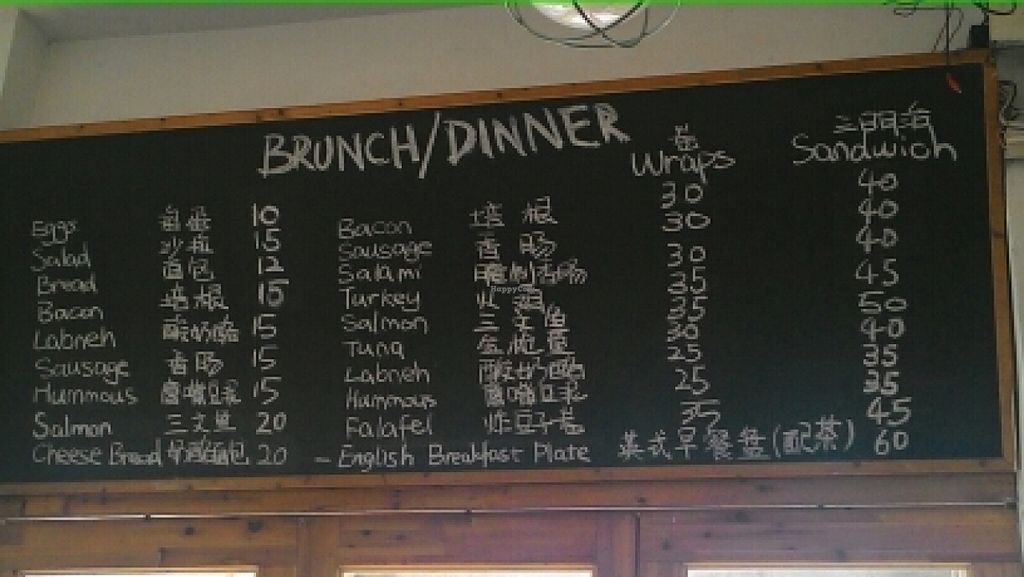 BRUNCH/DINNER
卷 三明治
Wraps Sandwich
Eggs 鸡蛋 10 Bacon 培根 30 40
Salad 沙拉 15 Sausage 香肠 30 40
Bread 面包 12 Salami 腌制香肠 30 40
Bacon 培根 15 Turkey 火鸡 35 45
Labneh 酸奶酪 15 Salmon 三文鱼 35 50
Sausage 香肠 15 Tuna 金枪鱼 30 40
Hummous 鹰嘴豆泥 15 Labneh 酸奶酪 25 35
Salmon 三文鱼 20 Hummous 鹰嘴豆泥 25 35
Cheese Bread 奶酪面包 20 Falafel 炸豆子卷 35 45
- English Breakfast Plate 英式早餐盘(配茶) 60
HappyCow